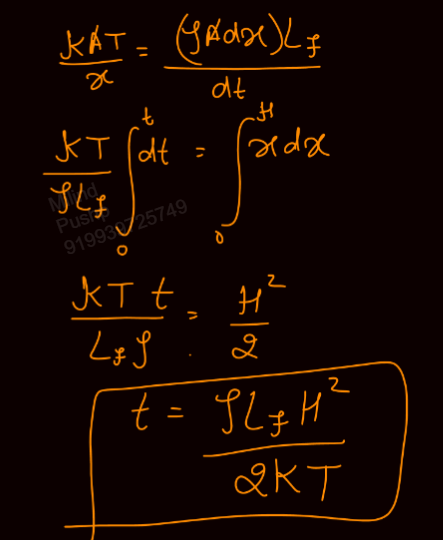 KAT/x = (ρAdx)L_f/dt
KT/ρL_f ∫₀ᵗ dt = ∫₀ᴴ x dx
Milind
919939725749
KT t/L_f ρ = H²/2
t = ρL_f H²/2KT